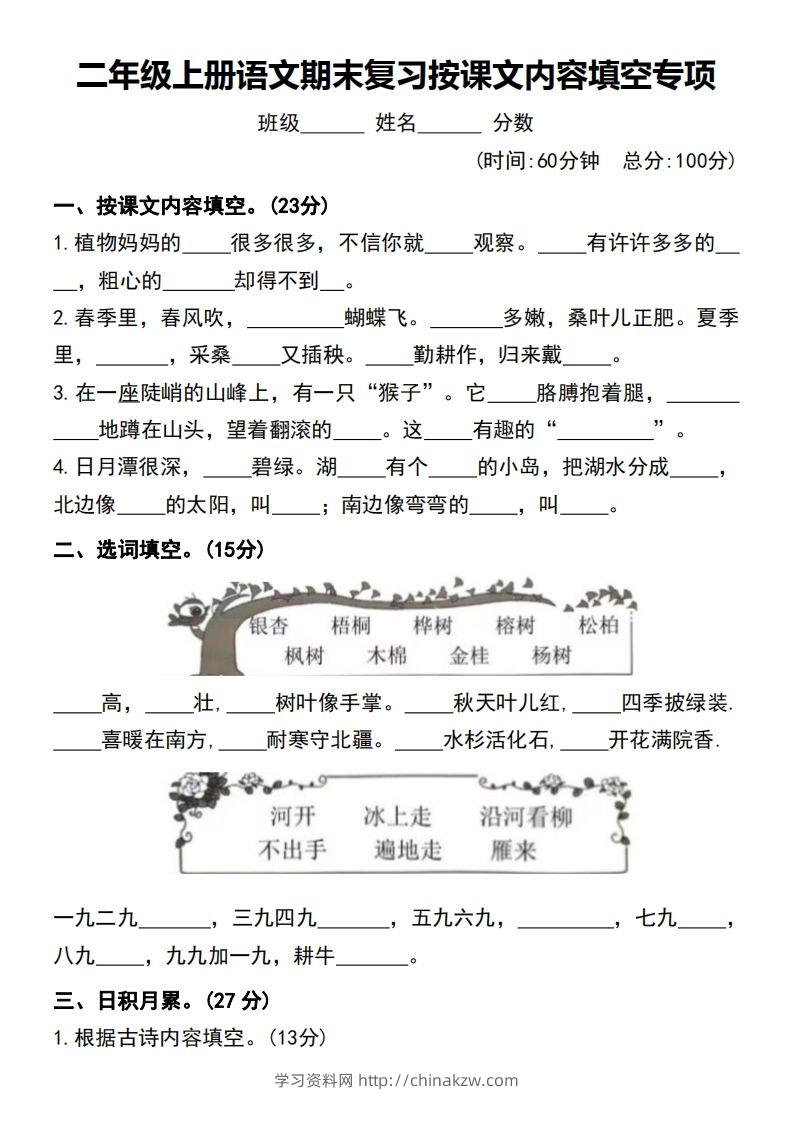 二年级上册语文期末复习按课文内容填空专项
班级______ 姓名______ 分数
(时间:60分钟 总分:100分)
一、按课文内容填空。(23分)
1.植物妈妈的____很多很多，不信你就____观察。____有许许多多的__
__，粗心的______却得不到__。
2.春季里，春风吹，________蝴蝶飞。______多嫩，桑叶儿正肥。夏季
里，______，采桑____又插秧。____勤耕作，归来戴____。
3.在一座陡峭的山峰上，有一只“猴子”。它____胳膊抱着腿，______
____地蹲在山头，望着翻滚的____。这____有趣的“________”。
4.日月潭很深，____碧绿。湖____有个____的小岛，把湖水分成____，
北边像____的太阳，叫____；南边像弯弯的____，叫____。
二、选词填空。(15分)
银杏 梧桐 桦树 榕树 松柏
枫树 木棉 金桂 杨树
____高，____壮,____树叶像手掌。____秋天叶儿红,____四季披绿装.
____喜暖在南方,____耐寒守北疆。____水杉活化石,____开花满院香.
河开 冰上走 沿河看柳
不出手 遍地走 雁来
一九二九______，三九四九______，五九六九，________，七九____，
八九____，九九加一九，耕牛______。
三、日积月累。(27 分)
1.根据古诗内容填空。(13分)
学习资料网 http://chinakzw.com